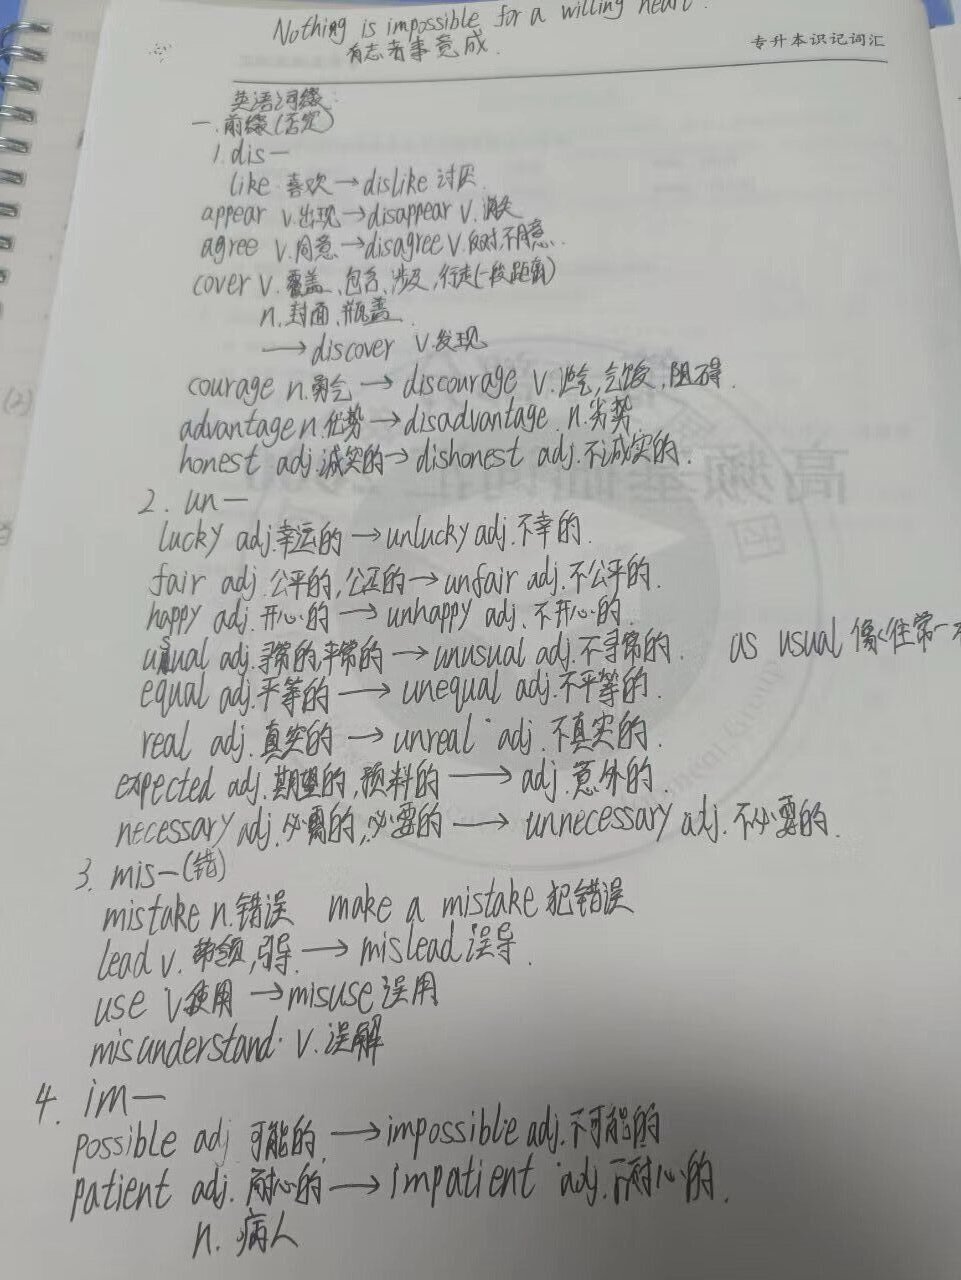 Nothing is impossible for a willing heart.
有志者事竟成.
专升本识记词汇
英语词缀:
一.前缀(否定)
1.dis—
like 喜欢→dislike 讨厌.
appear v.出现→disappear v.消失
agree v.同意→disagree v.反对,不同意.
cover v.覆盖、包含、涉及,行走(一段距离)
n.封面,瓶盖.
→discover v.发现
courage n.勇气→discourage v.泄气,气馁,阻碍.
advantage n.优势→disadvantage n.劣势.
honest adj.诚实的→dishonest adj.不诚实的.
2. un—
lucky adj.幸运的→unlucky adj.不幸的.
fair adj.公平的,公正的→unfair adj.不公平的.
happy adj.开心的→unhappy adj.不开心的.
usual adj.寻常的,平常的→unusual adj.不寻常的. as usual 像往常一
equal adj.平等的→unequal adj.不平等的.
real adj.真实的→unreal adj.不真实的.
expected adj.期望的,预料的→adj.意外的.
necessary adj.必需的,必要的→unnecessary adj.不必要的.
3. mis—(错)
mistake n.错误 make a mistake 犯错误
lead v.带领,引导.→mislead 误导.
use v.使用→misuse 误用
misunderstand v.误解
4. im—
possible adj 可能的.→impossible adj.不可能的
patient adj.耐心的→impatient adj.不耐心的.
n.病人
高频基础词汇